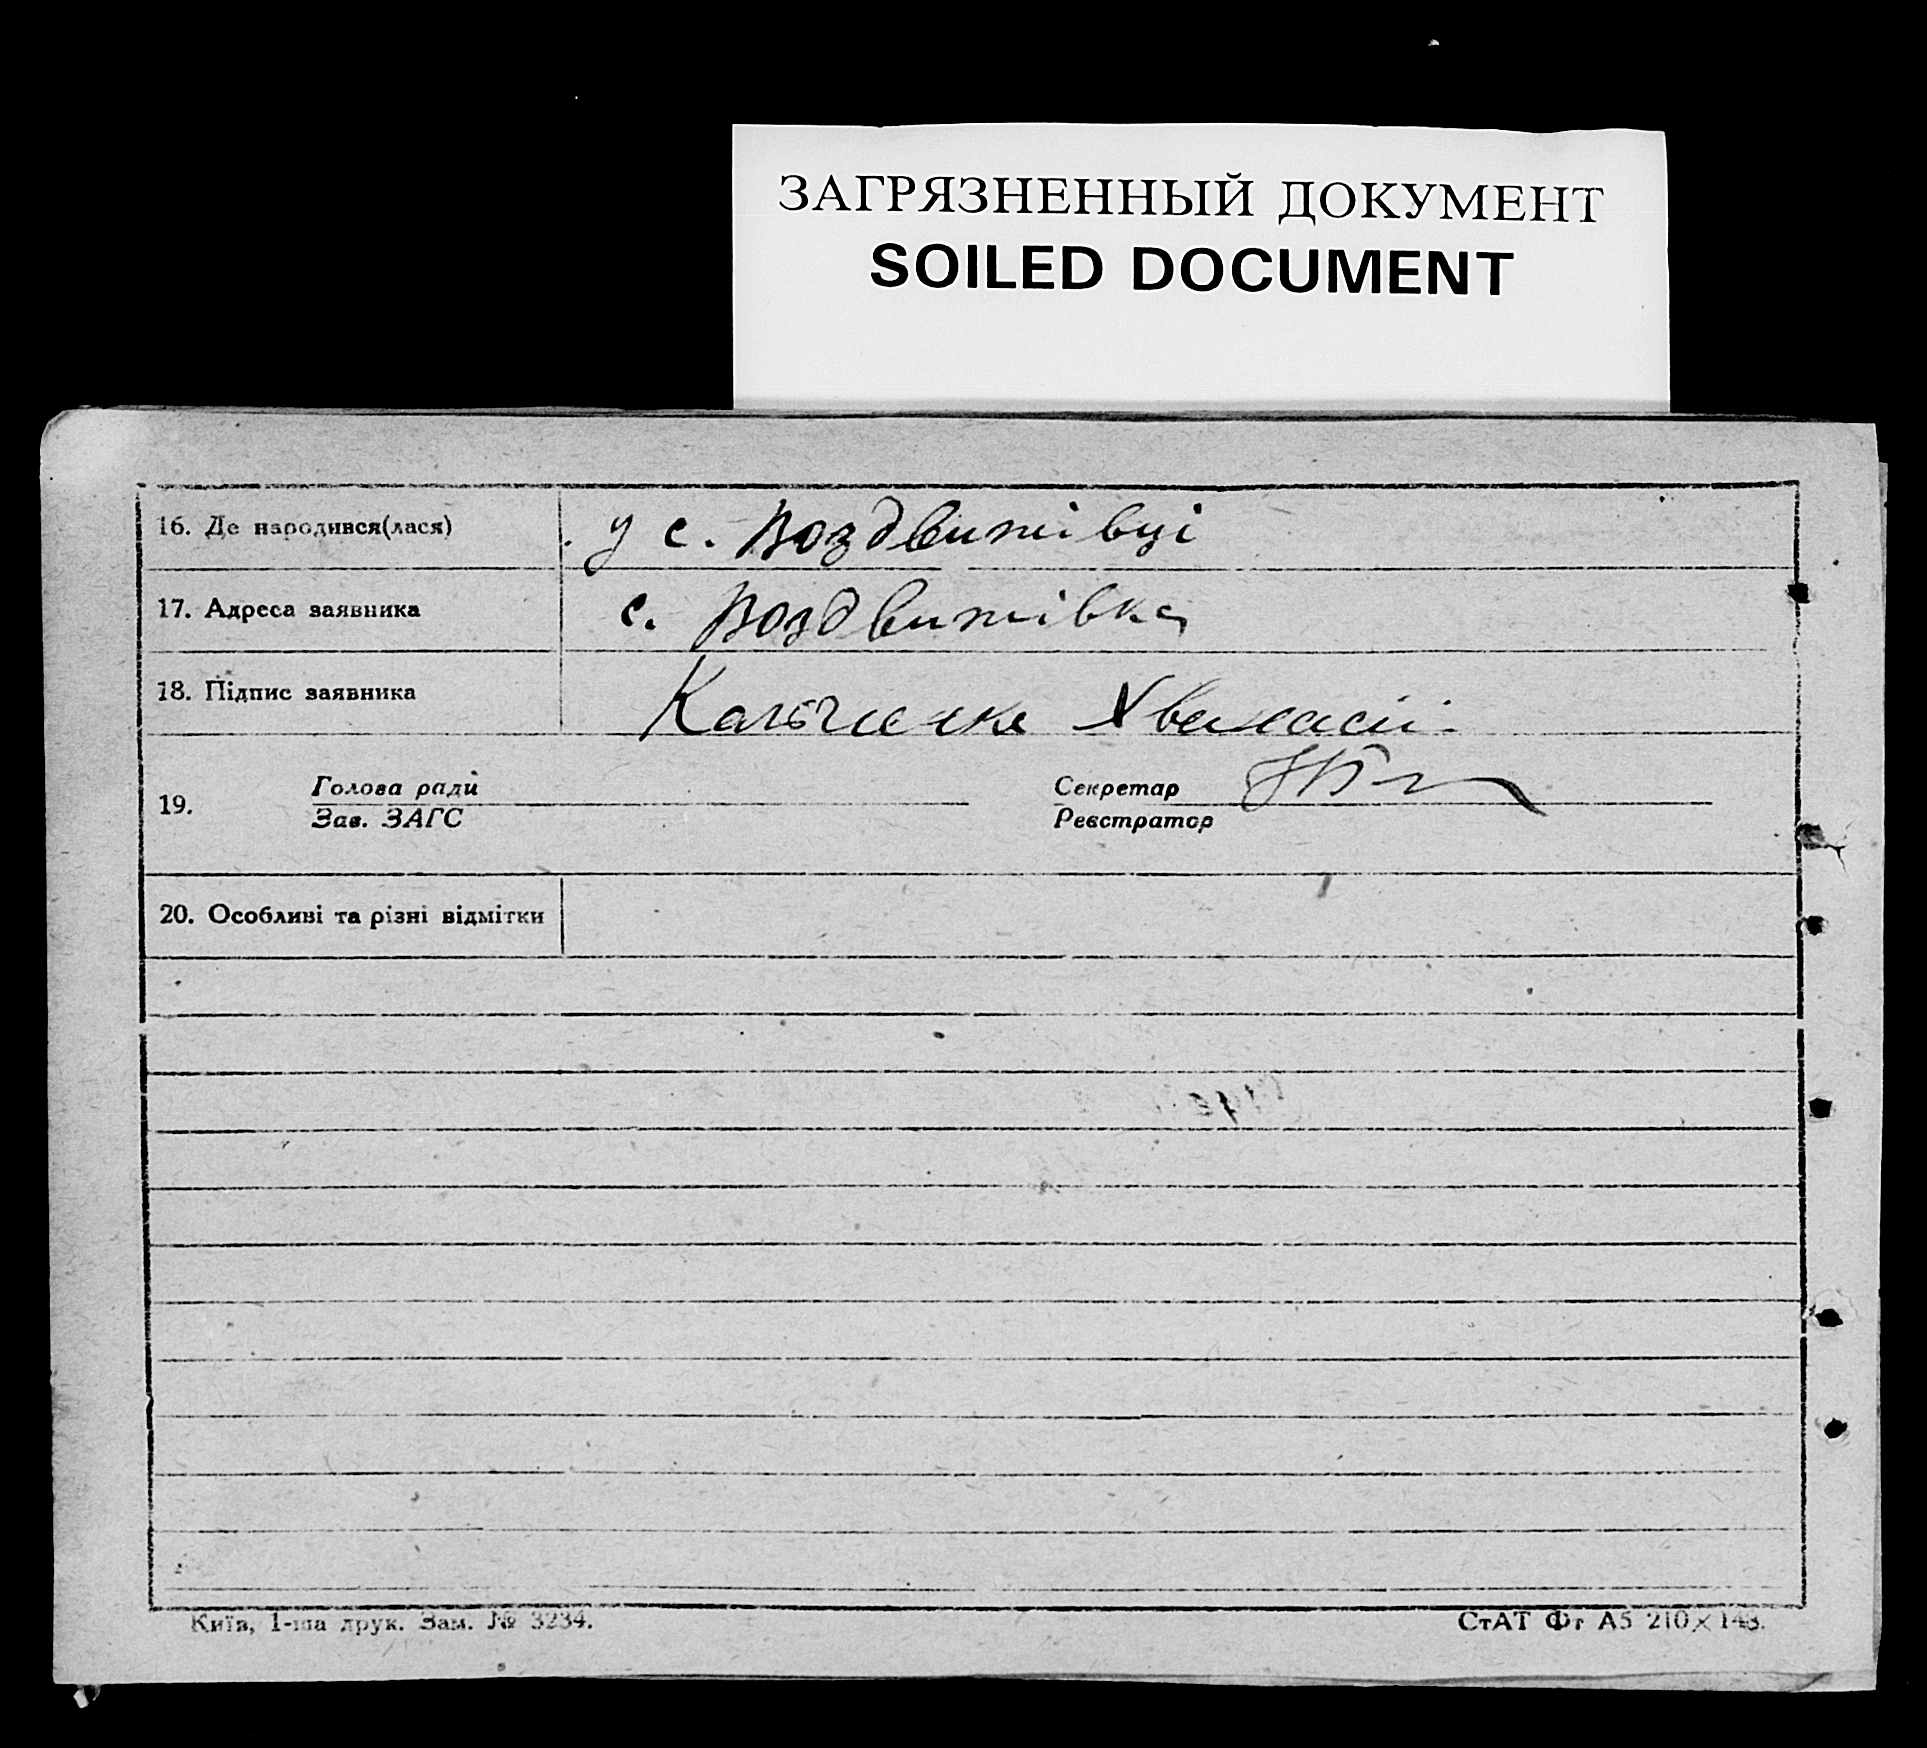 ЗАГРЯЗНЕННЫЙ ДОКУМЕНТ
SOILED DOCUMENT
16. Де народився(лася) у с. Воздвижівці
17. Адреса заявника с. Воздвижівка
18. Підпис заявника Кальченко Хванасій
19. Голова ради Секретар
Зав. ЗАГС Реєстратор
20. Особливі та різні відмітки
Київ, 1-ша друк. Зам. № 3234. СтАТ Фг А5 210×148.